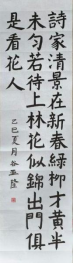 詩家清景在新春綠柳才黃半
未勻若待上林花似錦出門俱
是看花人
己巳夏月谷亞隆